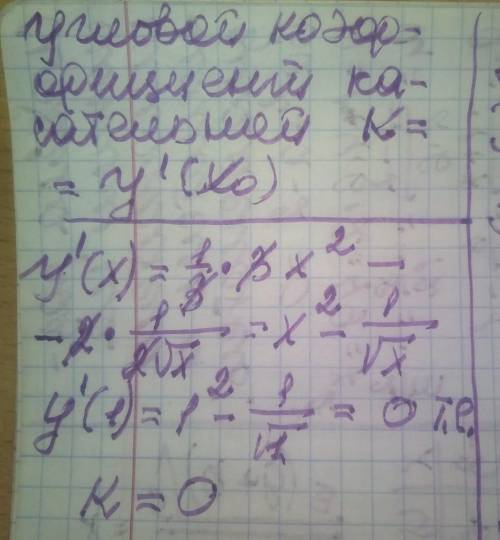 угловой коэф-
фициент ка-
сательной K=
= y'(x₀)
y'(x) = 1/3 · 3x² −
− 2 · 1/(2√x) = x² − 1/√x
y'(1) = 1² − 1/√1 = 0 т.е.
K = 0